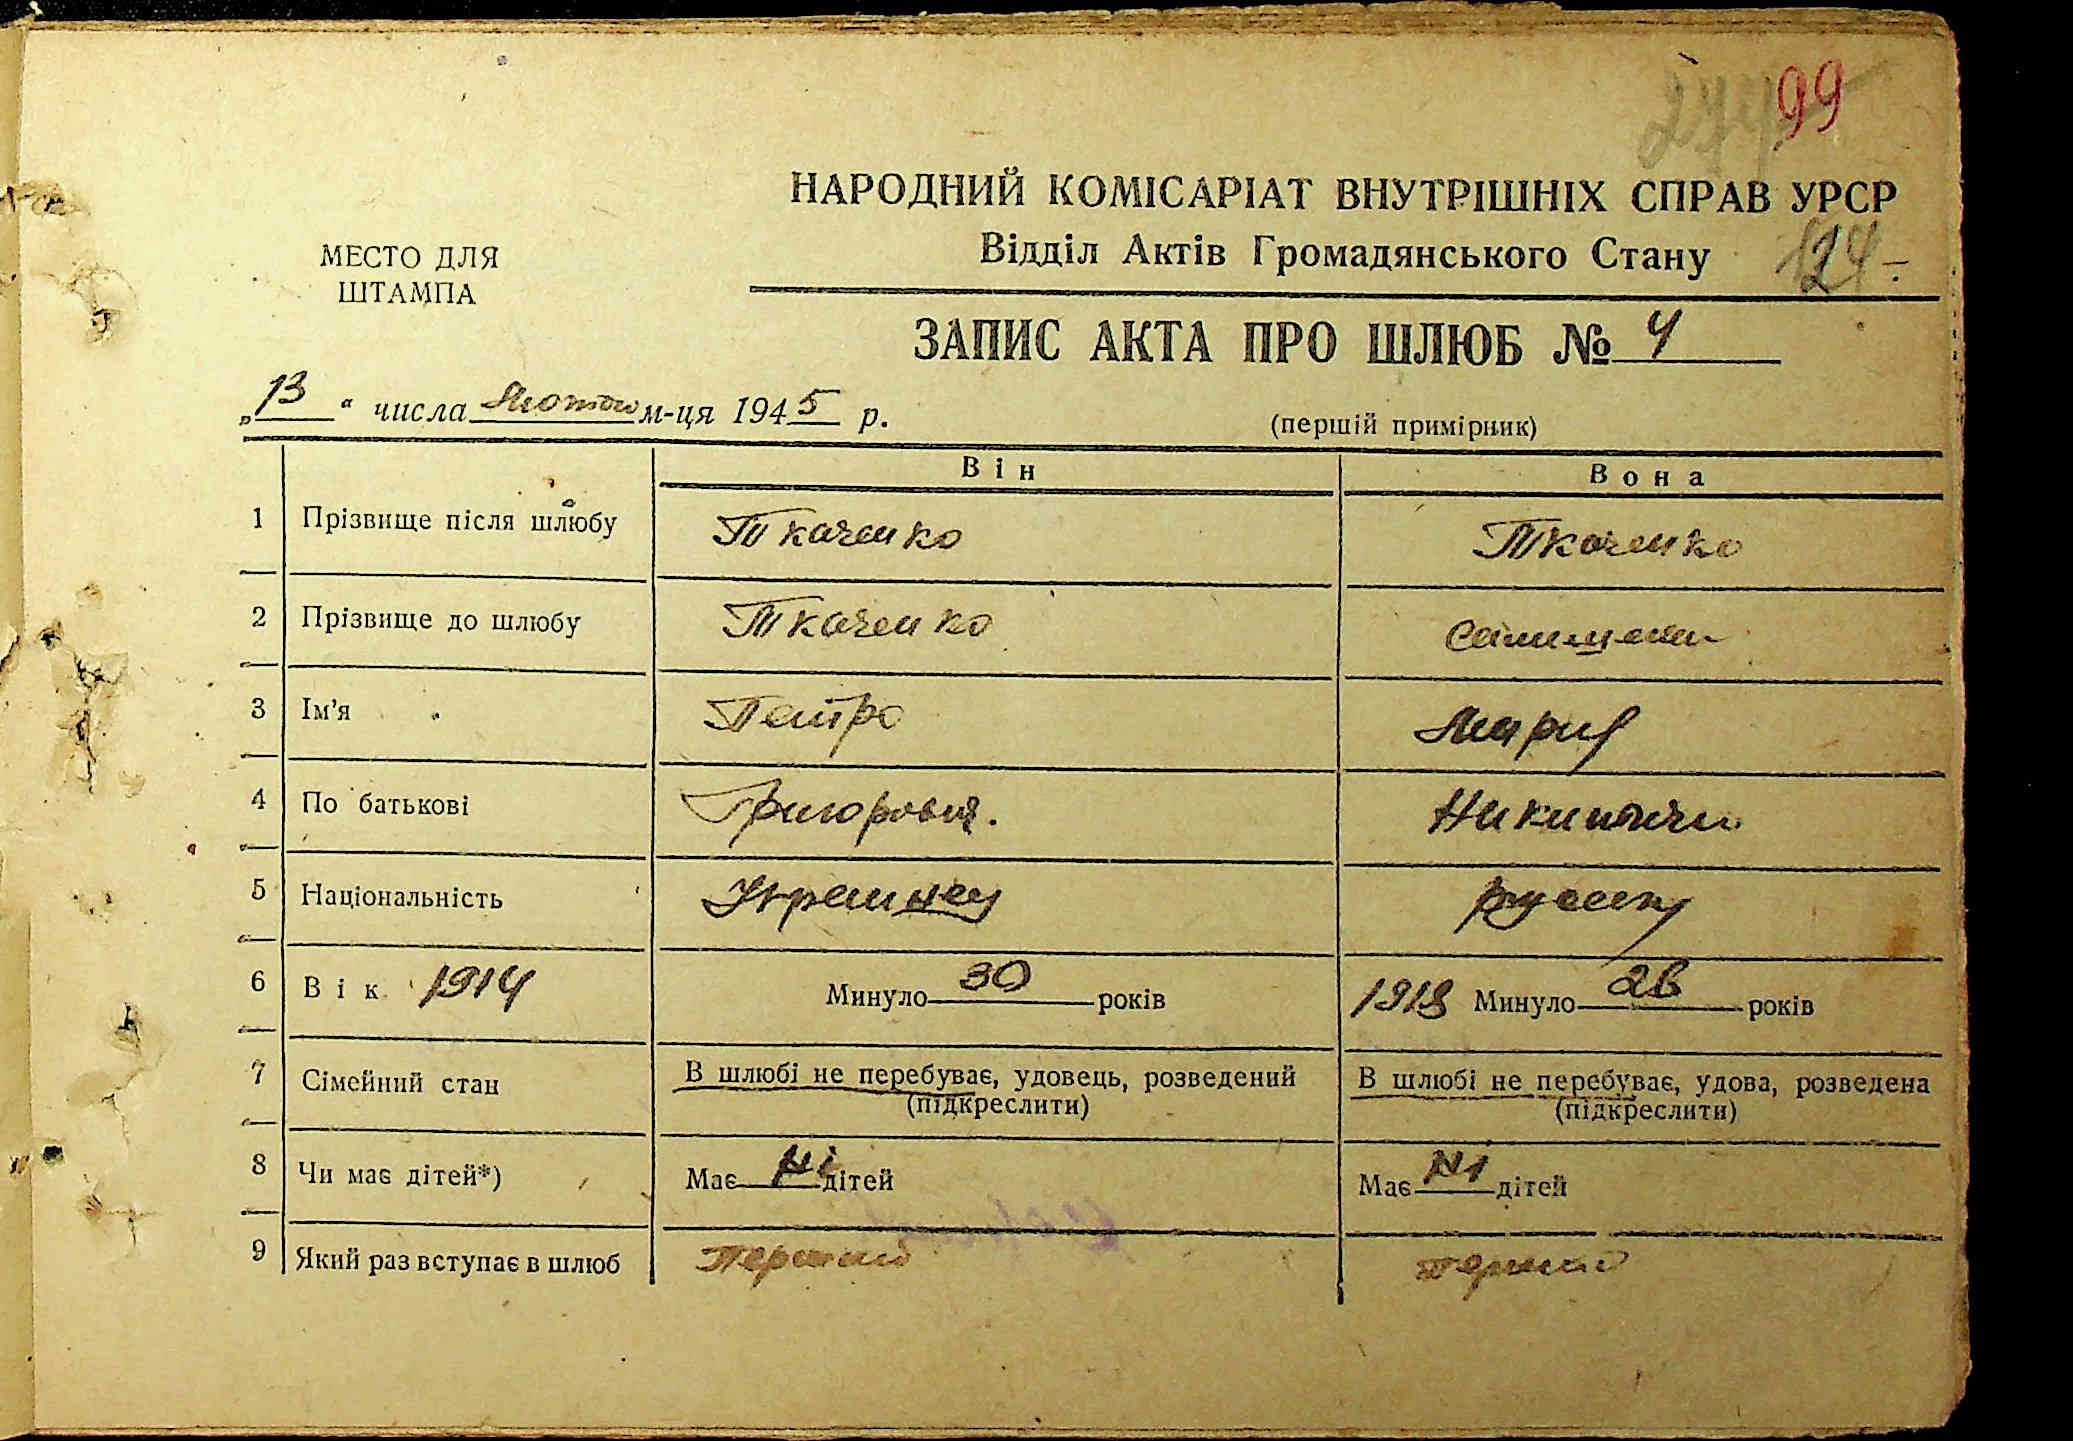 99
НАРОДНИЙ КОМІСАРІАТ ВНУТРІШНІХ СПРАВ УРСР
Відділ Актів Громадянського Стану
124 -
МЕСТО ДЛЯ
ШТАМПА
ЗАПИС АКТА ПРО ШЛЮБ № 4
„13“ числа м-ця 1945 р.
(першій примірник)
Він Вона
1 Прізвище після шлюбу Ткаченко Ткаченко
2 Прізвище до шлюбу Ткаченко
3 Ім'я Петро Мария
4 По батькові Григорович.
5 Національність Украинец
6 Вік 1914 Минуло 30 років 1918 Минуло 26 років
7 Сімейний стан В шлюбі не перебуває, удовець, розведений В шлюбі не перебуває, удова, розведена
(підкреслити) (підкреслити)
8 Чи має дітей*) Має Ні дітей Має Ні дітей
9 Який раз вступає в шлюб